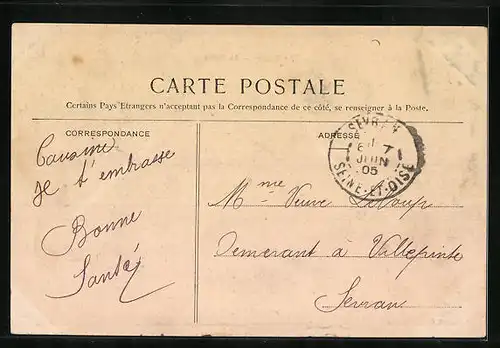 CARTE POSTALE
Certains Pays Etrangers n'acceptant pas la Correspondance de ce côté, se renseigner à la Poste.
CORRESPONDANCE
ADRESSE
SEVRAN
6 - 7
JUIN
05
SEINE-ET-OISE
Je t'embrasse
Bonne
Santé
Mme Veuve Leloup
Demerant à Villepinte
Sevran